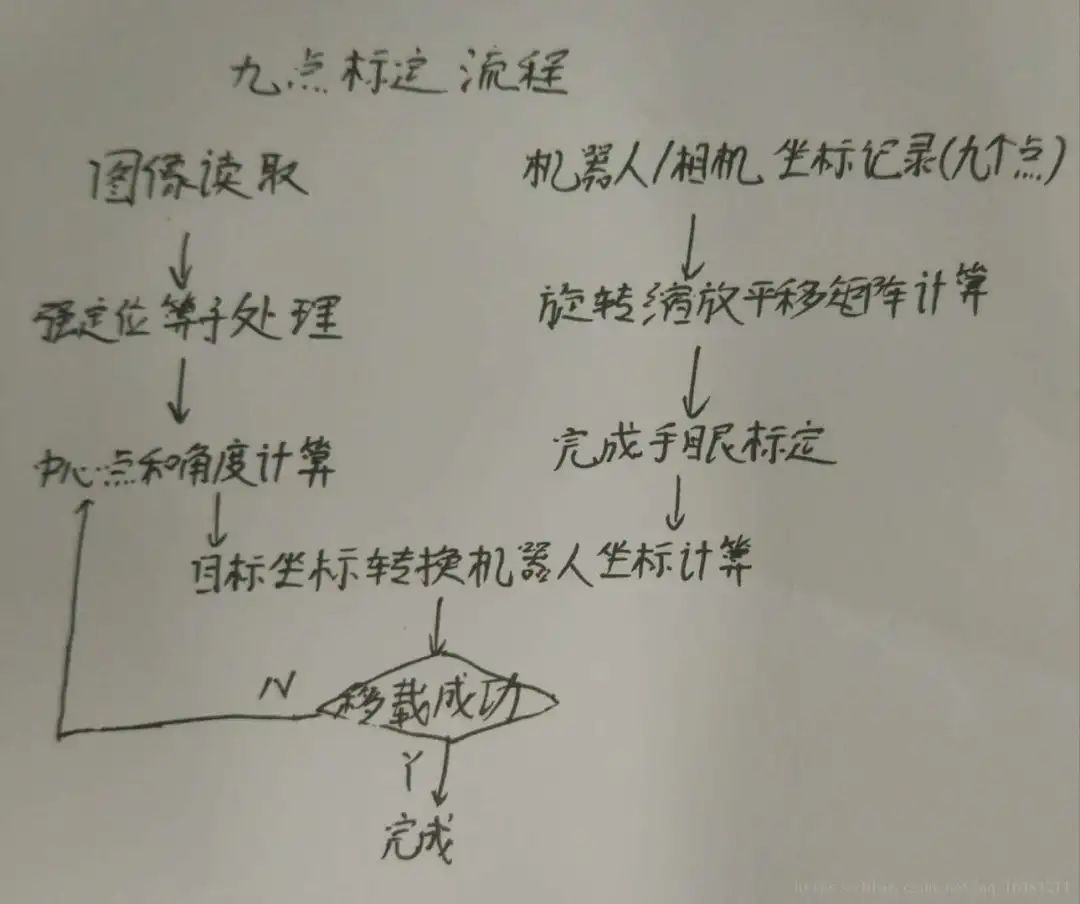 九点标定流程
图像读取
机器人/相机 坐标记录(九个点)
强定位等子处理
旋转缩放平移矩阵计算
中心点和角度计算
完成手眼标定
目标坐标转换机器人坐标计算
N
移载成功
Y
完成